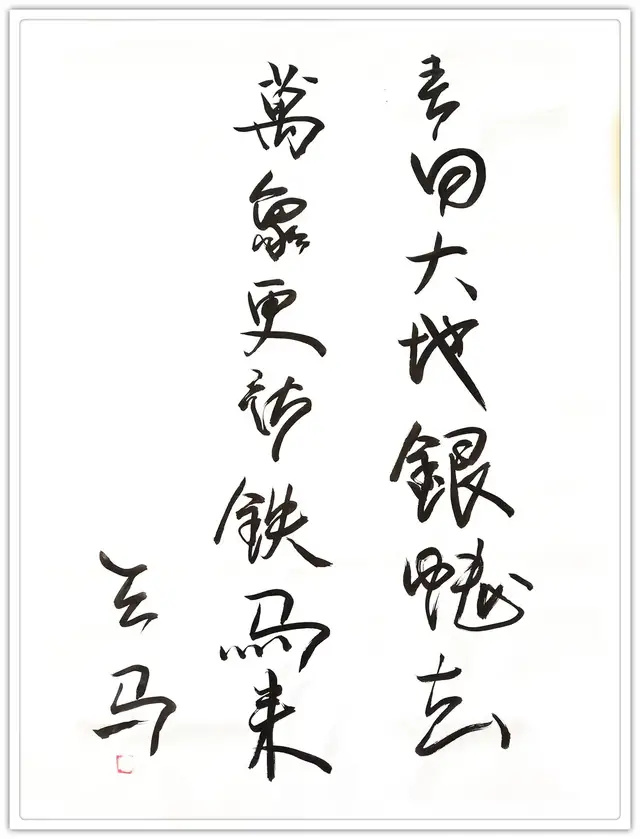 春回大地銀蛇去
萬象更新鉄馬来
云马